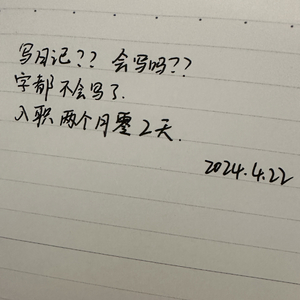 写日记?? 会写吗??
字都不会写了.
入职两个月零2天.
2024.4.22